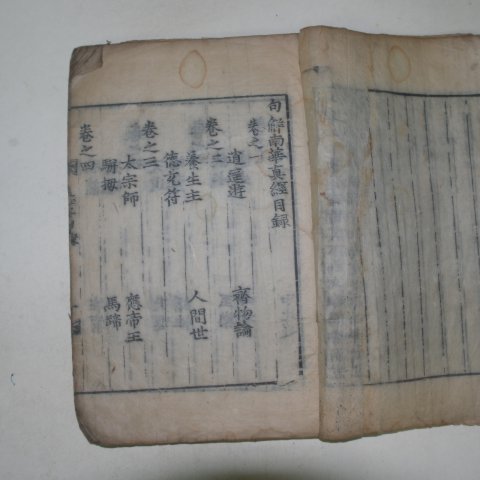 句解南華真經目録
卷之一
逍遙遊 齊物論
卷之二
養生主 人間世
德充符
卷之三
太宗師 應帝王
駢拇 馬蹄
卷之四